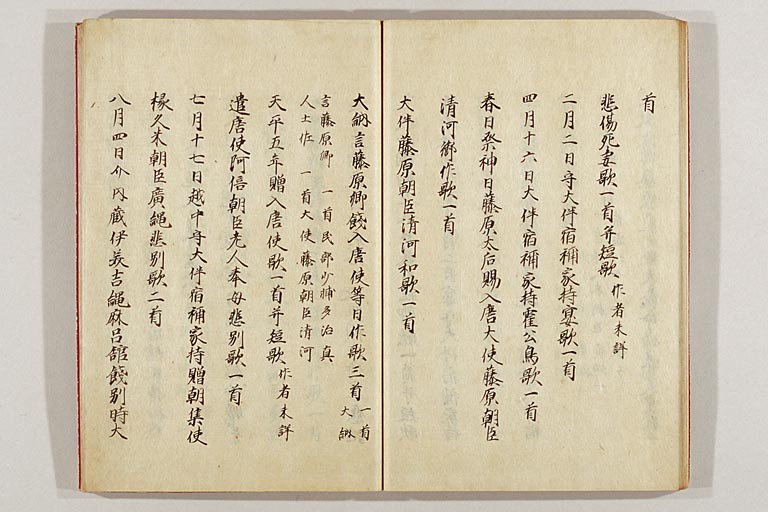 首
悲傷死妻歌一首并短歌 作者未詳
二月二日守大伴宿祢家持宴歌一首
四月十六日大伴宿祢家持霍公鳥歌一首
春日祭神日藤原太后賜入唐大使藤原朝臣
清河卿作歌一首
大伴藤原朝臣清河和歌一首
大納言藤原卿餞入唐使等日作歌三首 一首大納
言藤原卿 一首民部少輔多治真
人土作 一首大使藤原朝臣清河
天平五年贈入唐使歌一首并短歌 作者未詳
遣唐使阿倍朝臣老人奉母悲別歌一首
七月十七日越中守大伴宿祢家持贈朝集使
椽久米朝臣廣縄悲別歌二首
八月四日介内蔵伊美吉縄麻呂舘餞別時大